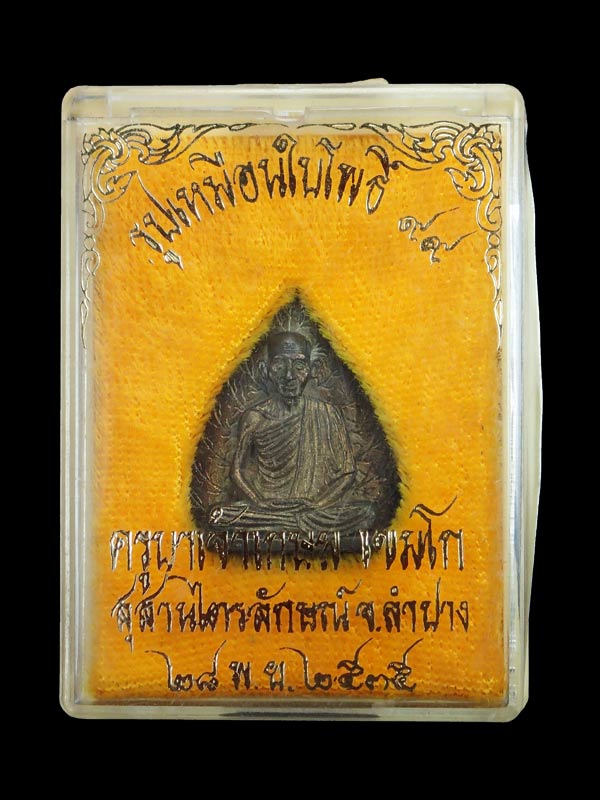 รูปเหมือนใบโพธิ์
๙๙
ครูบาเจ้าเกษม เขมโก
สุสานไตรลักษณ์ จ.ลำปาง
๒๘ พ.ย. ๒๕๓๕